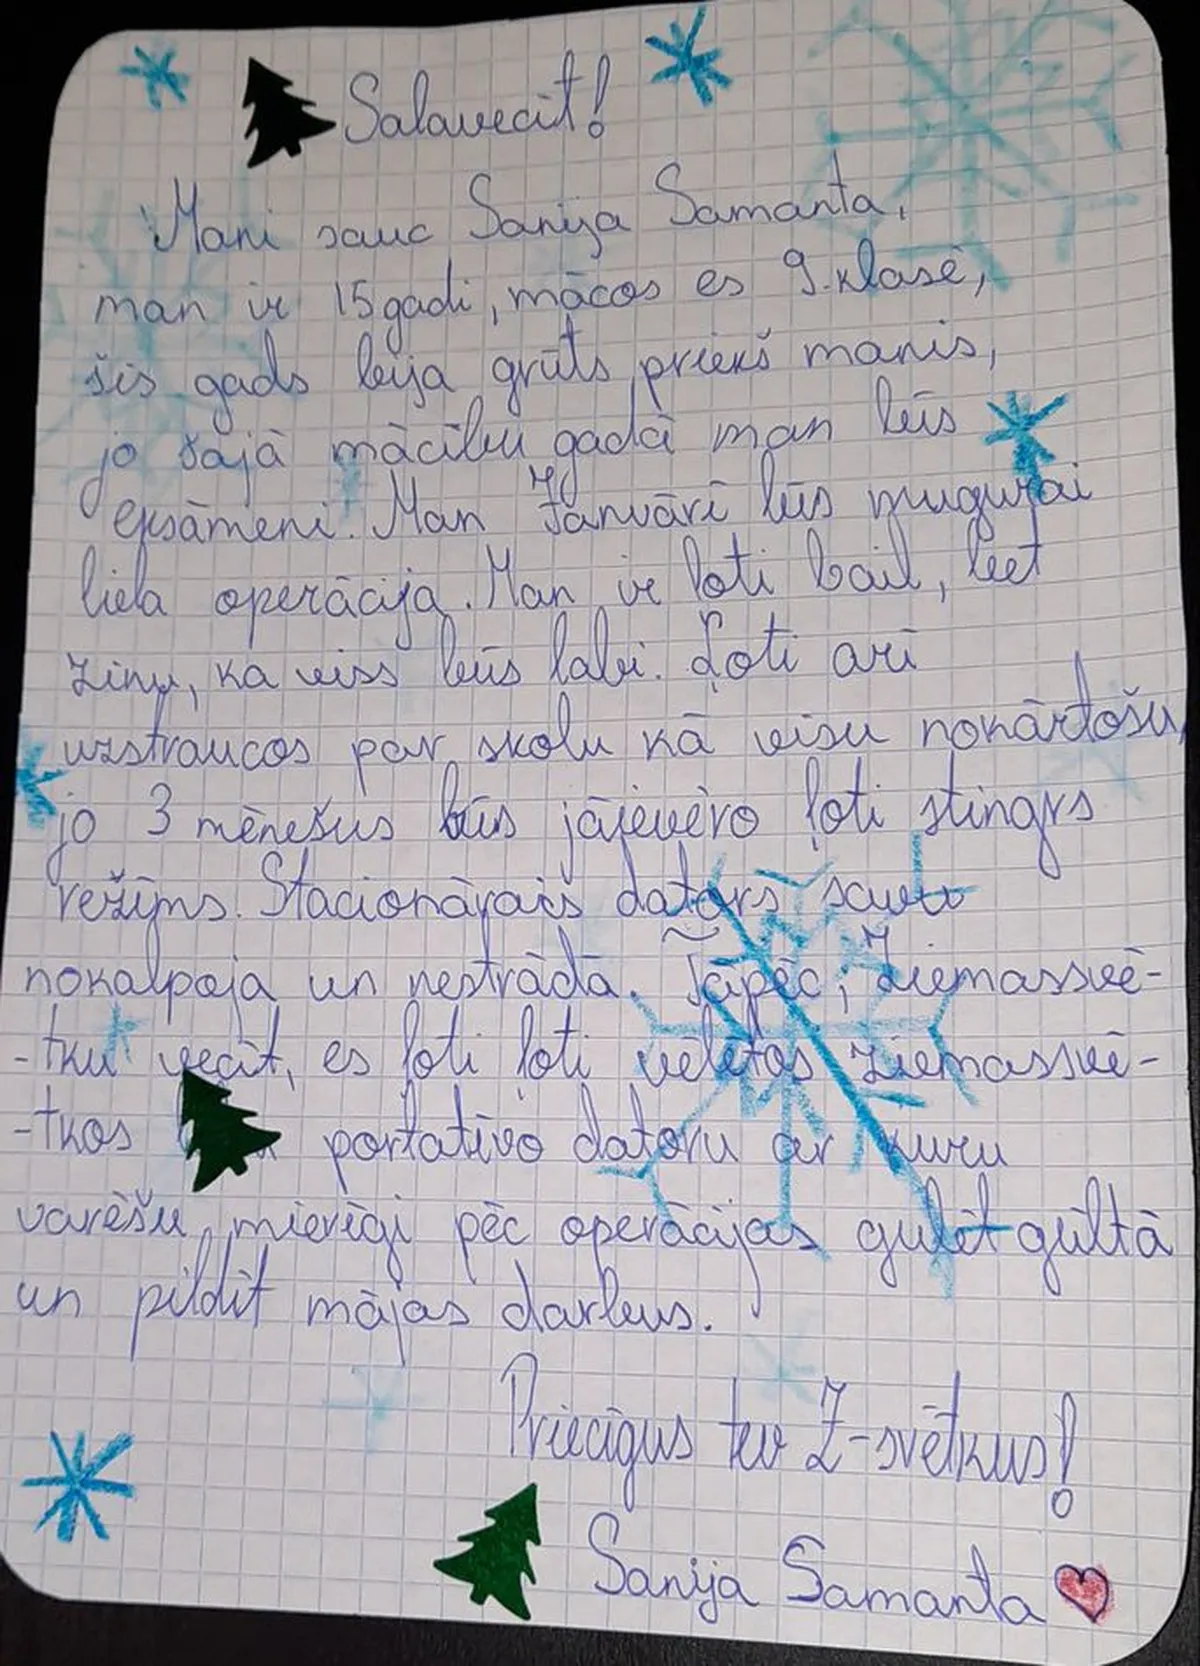 Salavecīt!
Mani sauc Sanija Samanta,
man ir 15 gadi, mācos es 9. klasē,
šis gads bija grūts priekš manis,
jo šajā mācību gadā man būs
eksāmeni. Man Janvārī būs mugurai
liela operācija. Man ir ļoti bail, bet
zinu, ka viss būs labi. Ļoti arī
uzstraucos par skolu kā visu nokārtošu,
jo 3 mēnešus būs jāievēro ļoti stingrs
režīms. Stacionārais dators savu
nokalpoja un nestrādā. Tāpēc, Ziemassvē-
-tku vecīt, es ļoti ļoti vēlētos Ziemassvē-
-tkos portatīvo datoru ar kuru
varēšu mierīgi pēc operācijas gulēt gultā
un pildīt mājas darbus.
Priecīgus tev Z-svētkus!
Sanija Samanta